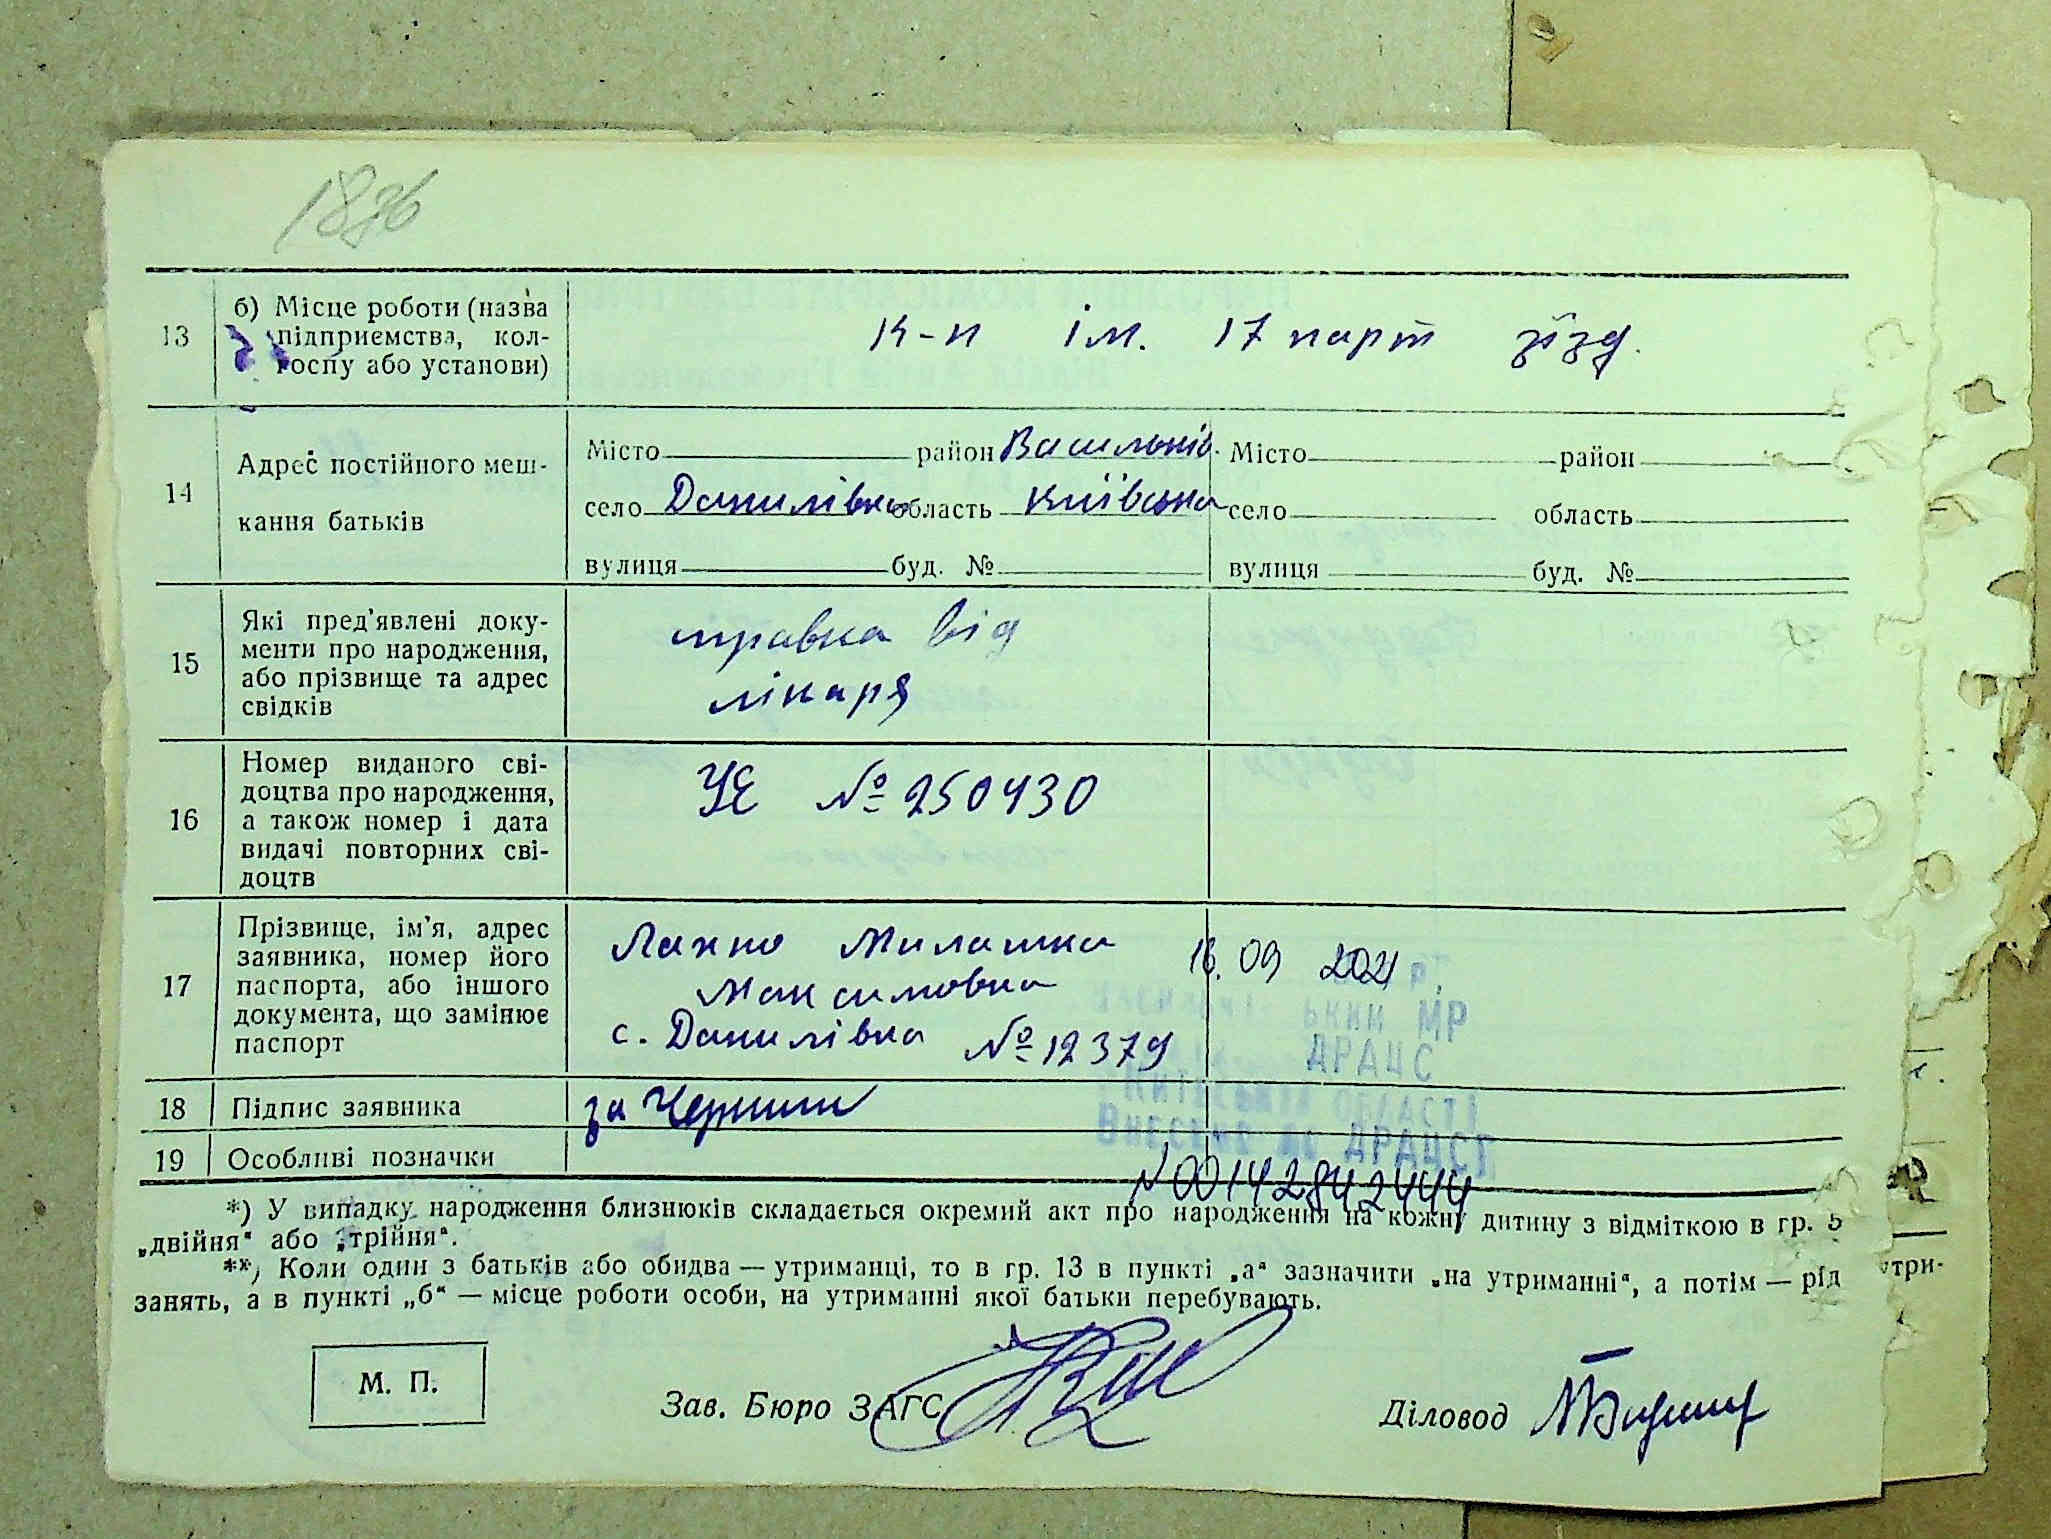 18зв
13
б) Місце роботи (назва
підприємства, кол-
госпу або установи)
К-п ім. 17 парт зїзд.
14
Адрес постійного меш-
кання батьків
Місто район Васильків. Місто район
село Данилівка область київська село область
вулиця буд. № вулиця буд. №
15
Які пред'явлені доку-
менти про народження,
або прізвище та адрес
свідків
справка від
лікаря
16
Номер виданого сві-
доцтва про народження,
а також номер і дата
видачі повторних сві-
доцтв
УЄ № 250430
17
Прізвище, ім'я, адрес
заявника, номер його
паспорта, або іншого
документа, що замінює
паспорт
Лахно
Максимовна
с. Данилівка № 12379
16. 09 2021
ький МР
ДРАЦС
Київській області
Внесено до ДРАЦСГ
N 00142842444
18 Підпис заявника
за
19 Особливі позначки
*) У випадку народження близнюків складається окремий акт про народження на кожну дитину з відміткою в гр. 5
„двійня" або „трійня".
**) Коли один з батьків або обидва — утриманці, то в гр. 13 в пункті „а" зазначити „на утриманні", а потім — рід
занять, а в пункті „б" — місце роботи особи, на утриманні якої батьки перебувають.
утри-
М. П.
Зав. Бюро ЗАГС
Діловод